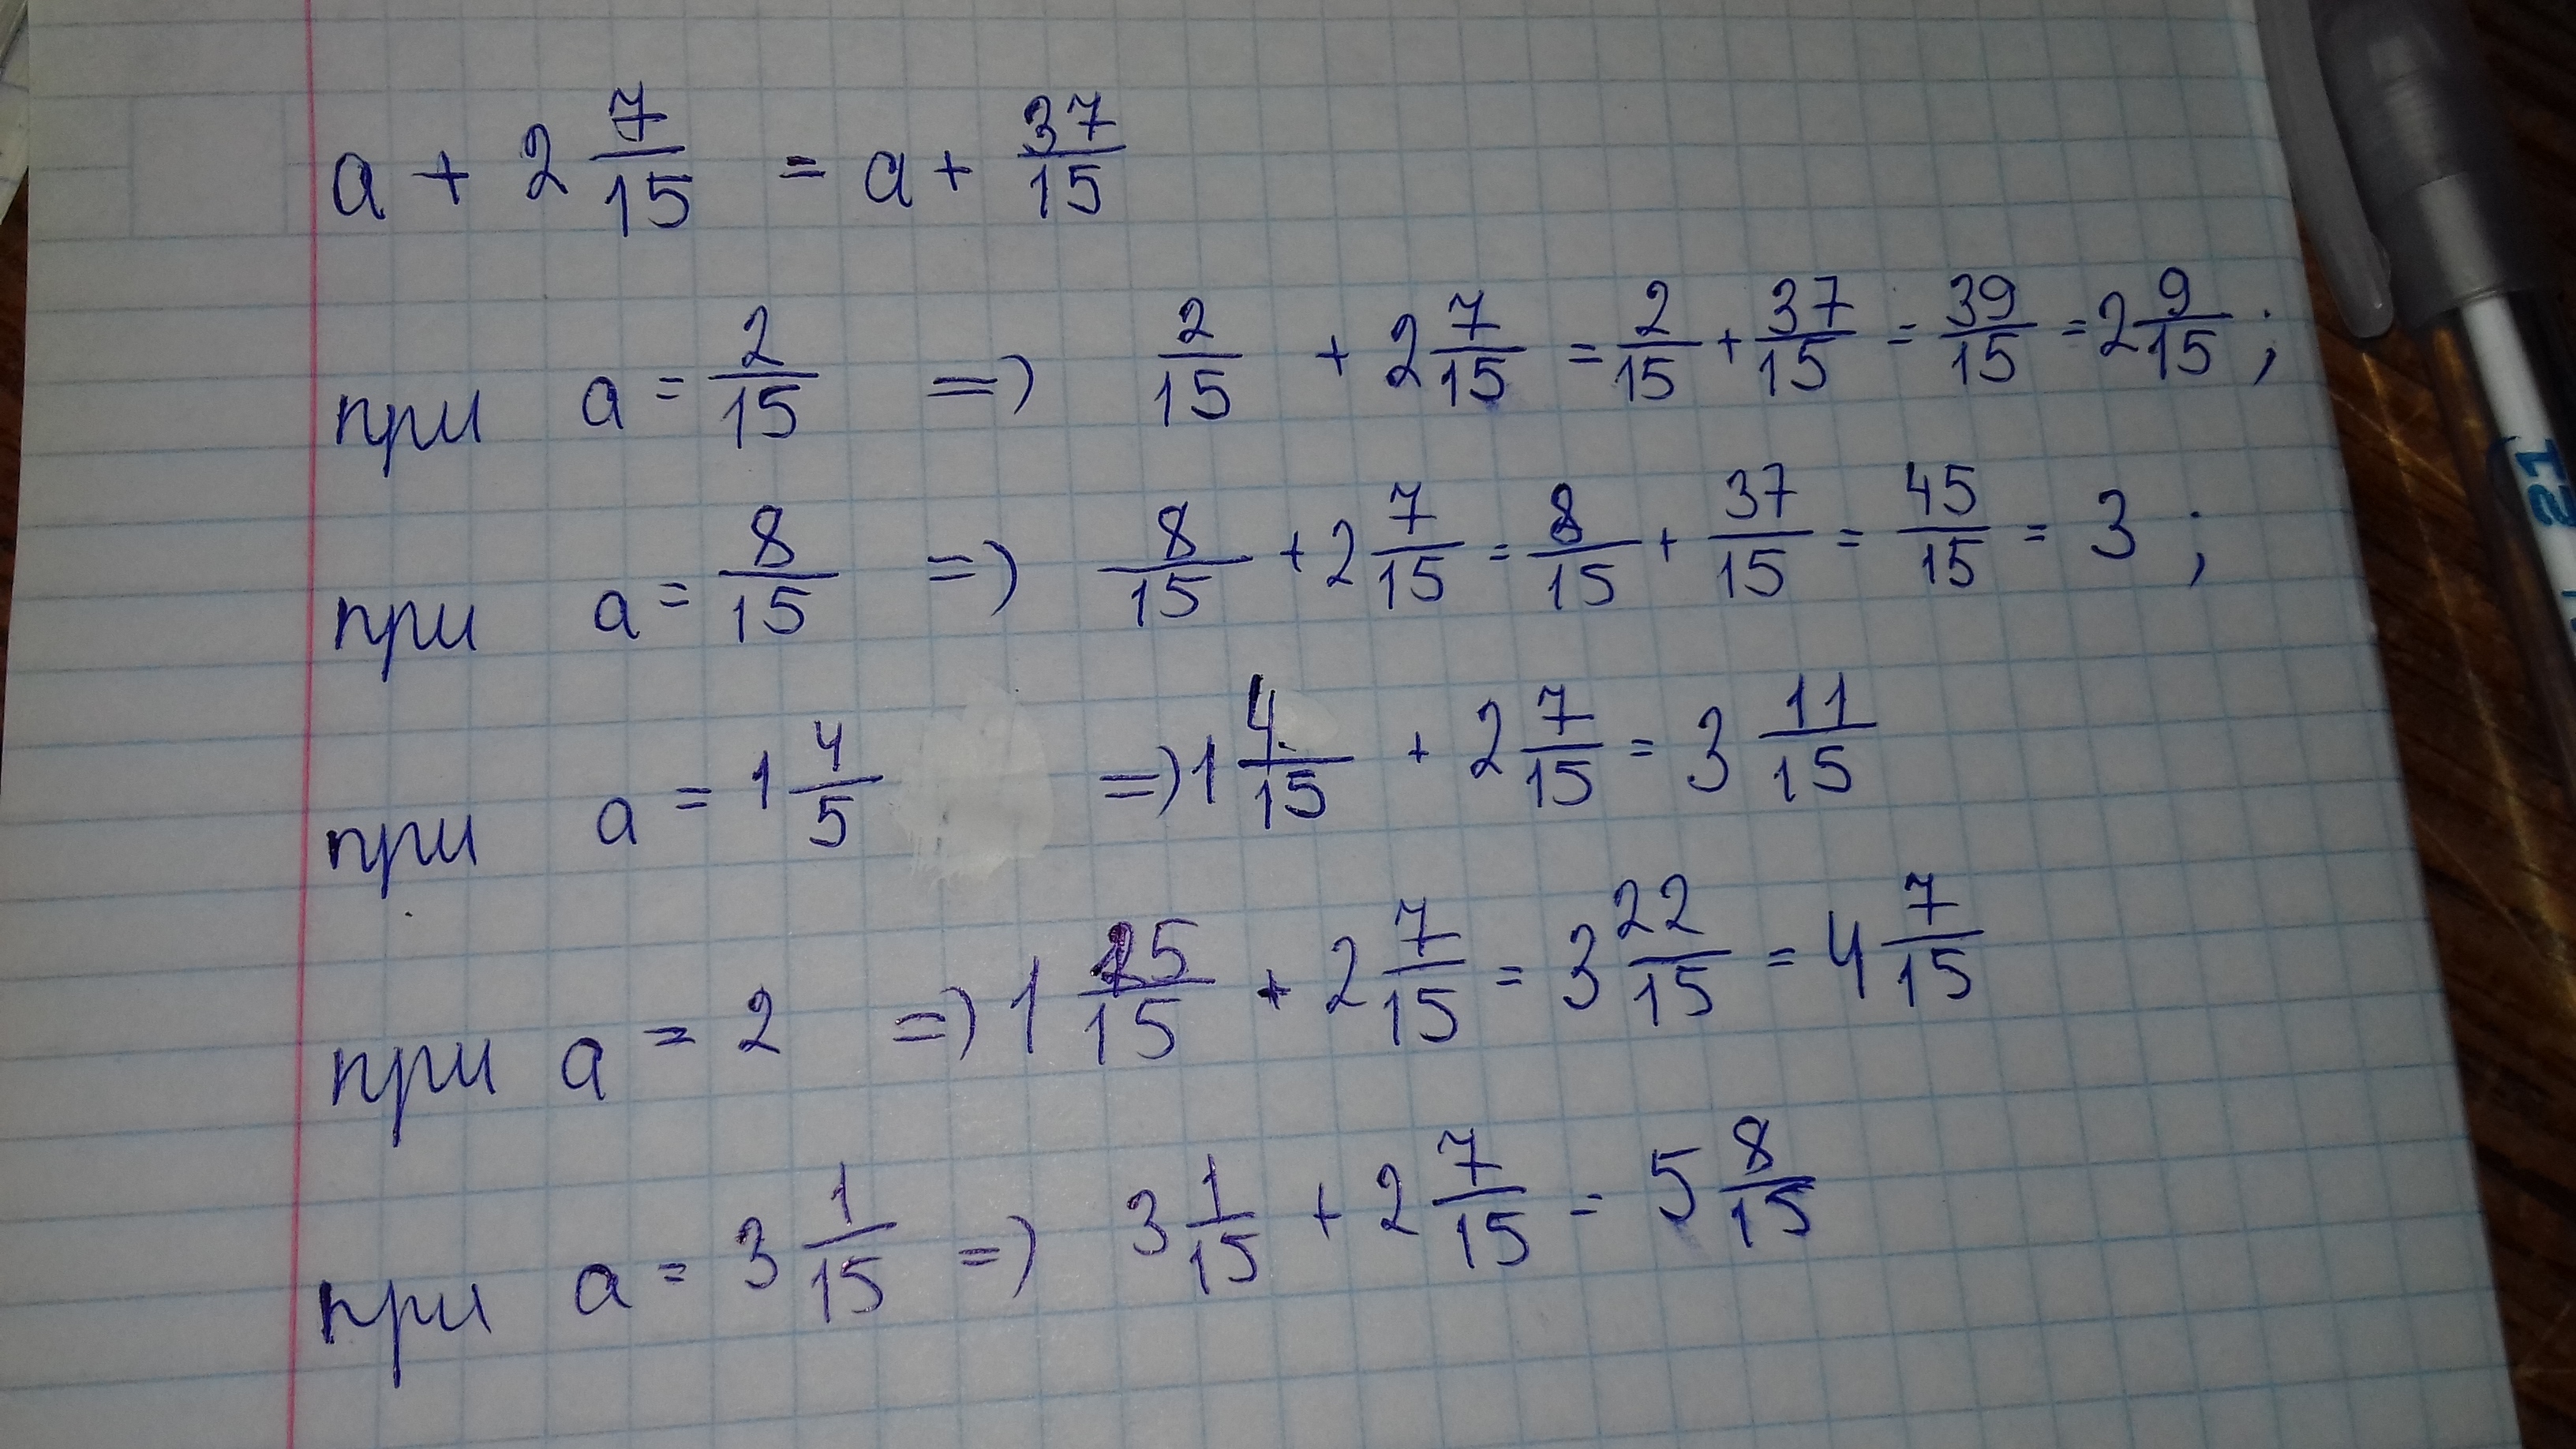 a + 2 7/15 = a + 37/15
при a = 2/15 => 2/15 + 2 7/15 = 2/15 + 37/15 = 39/15 = 2 9/15 ;
при a = 8/15 => 8/15 + 2 7/15 = 8/15 + 37/15 = 45/15 = 3 ;
при a = 1 4/5 => 1 4/15 + 2 7/15 = 3 11/15
при a = 2 => 1 15/15 + 2 7/15 = 3 22/15 = 4 7/15
при a = 3 1/15 => 3 1/15 + 2 7/15 = 5 8/15
21